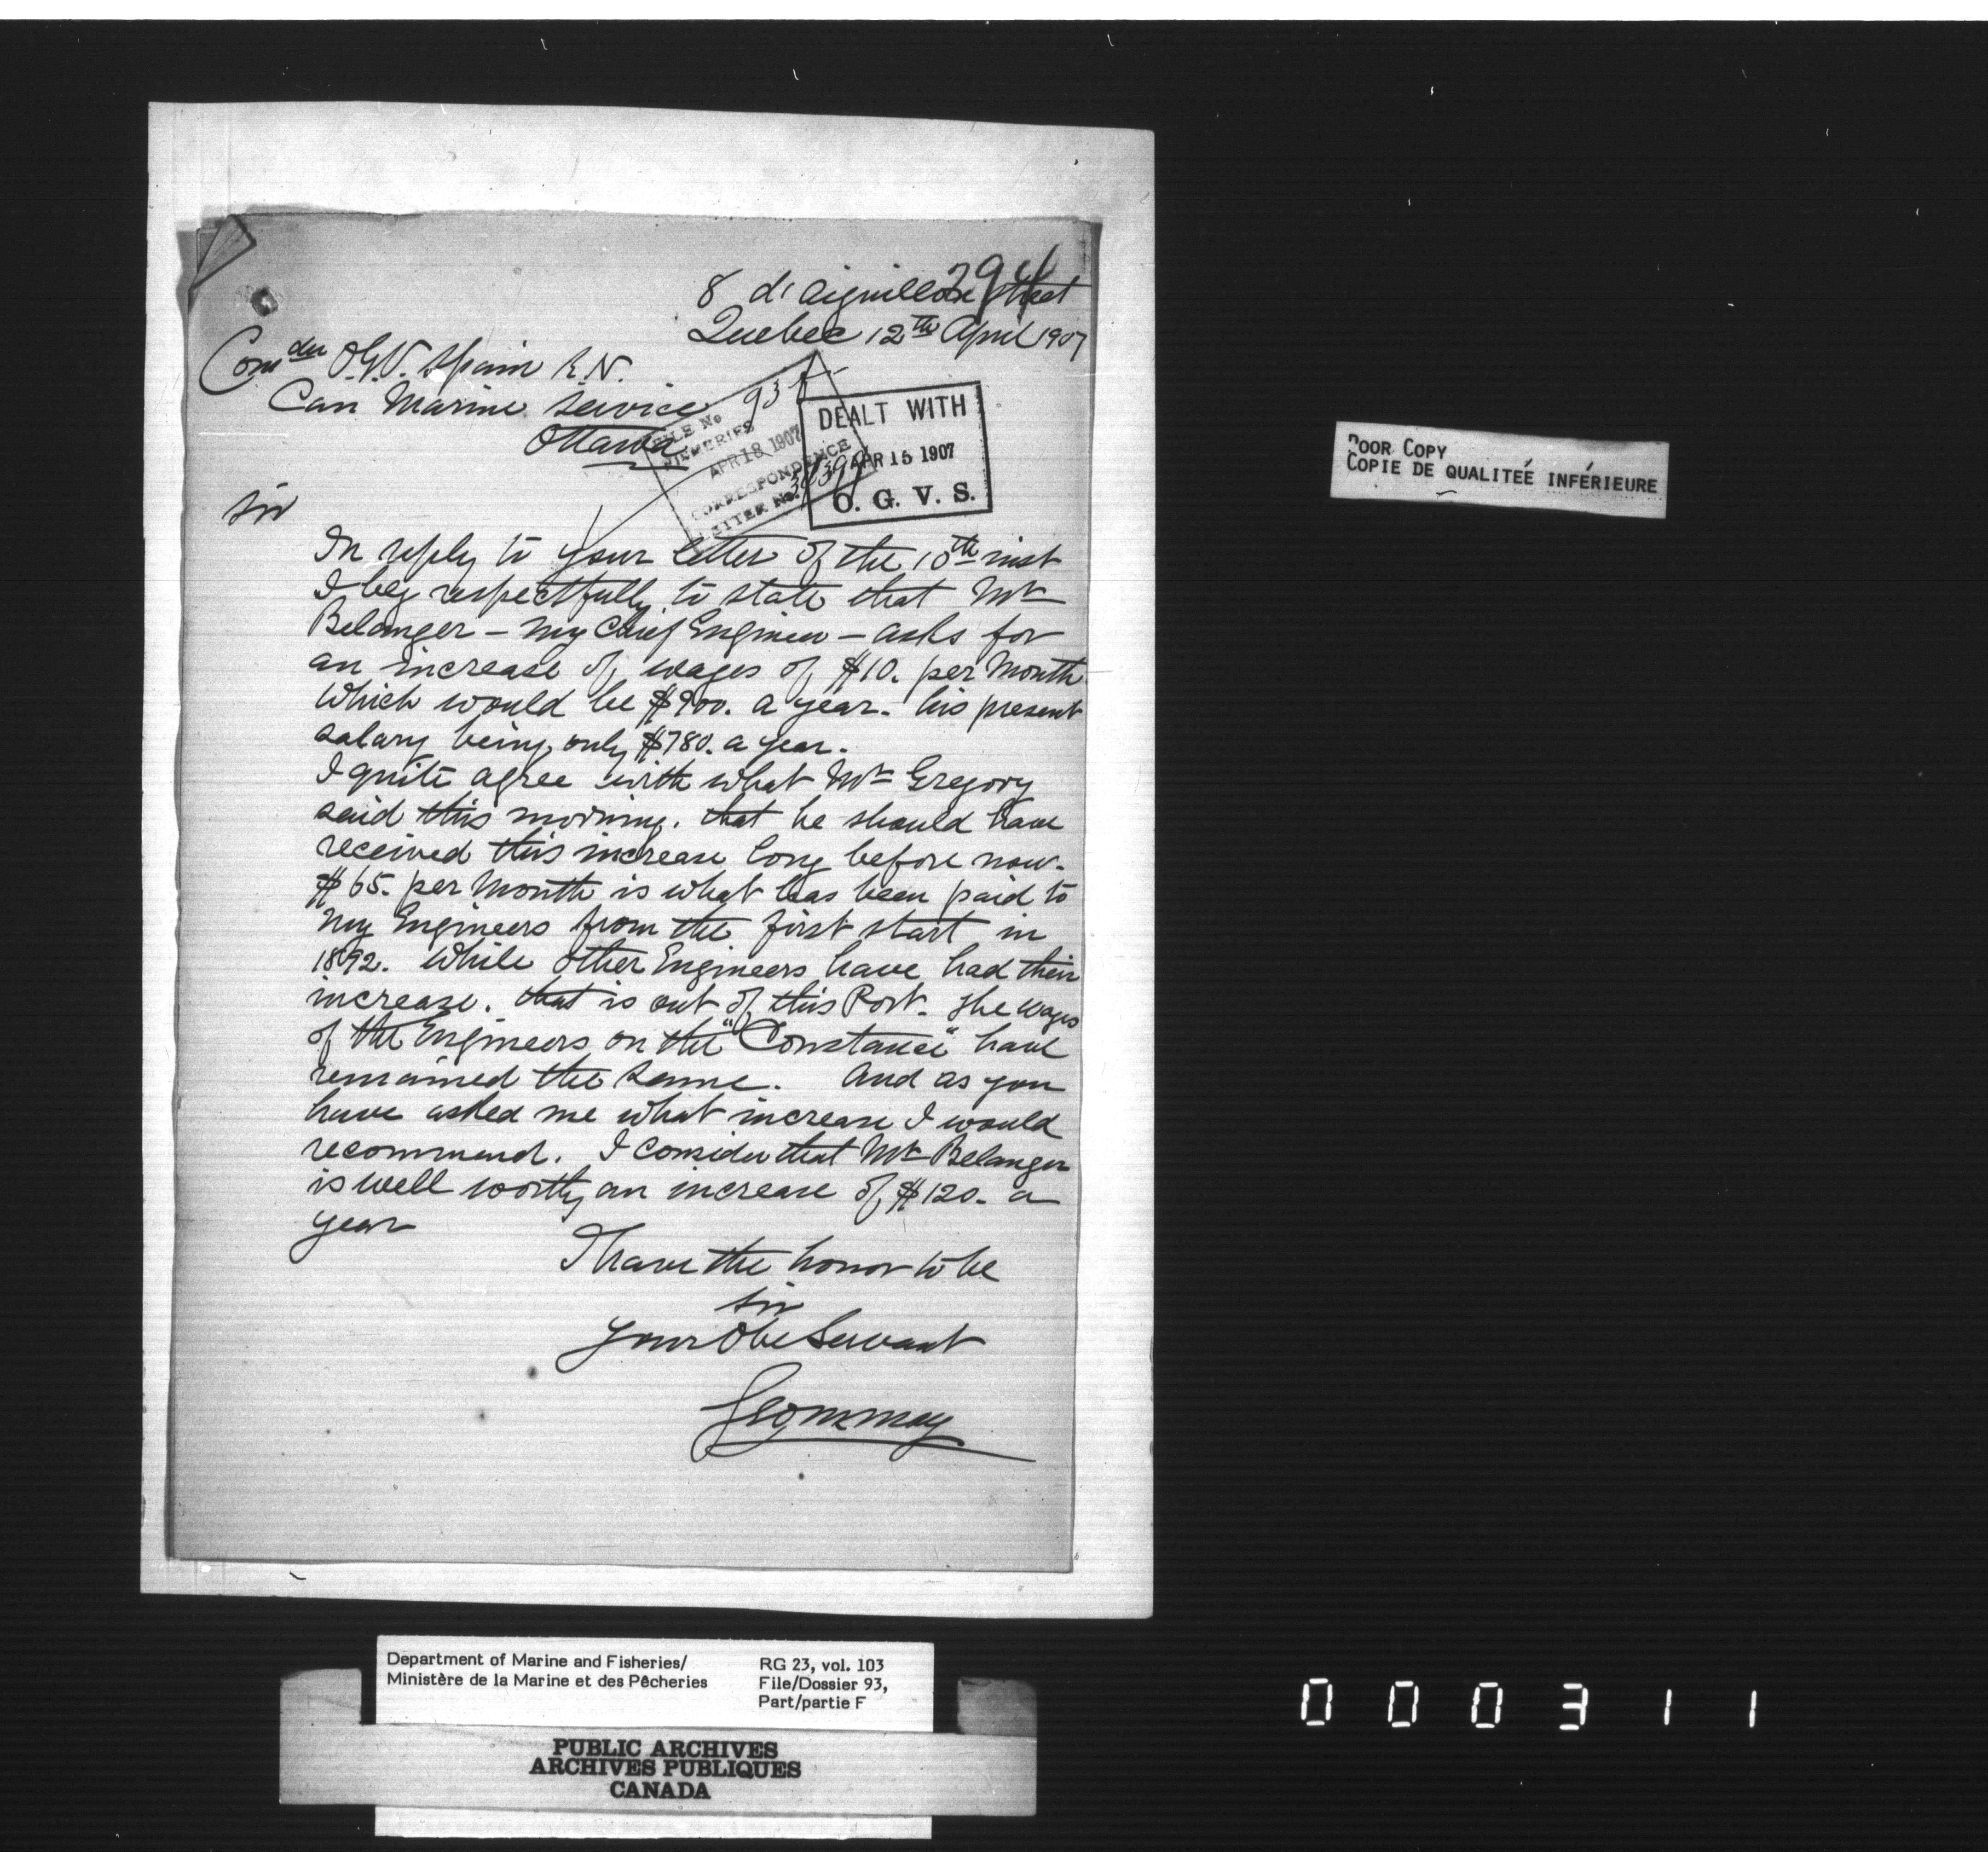 294
8 d'Aiguillon Street
Quebec 12th April 1907
Comder O.G.V. Spain R.N.
Can Marine Service
Ottawa
FILE No 93 F
FISHERIES
APR 18 1907
CORRESPONDENCE
LETTER No.
DEALT WITH
APR 15 1907
O. G. V. S.
Sir
In reply to your letter of the 10th inst
I beg respectfully to state that Mr
Belanger - my Chief Engineer - asks for
an increase of wages of $10. per Month
which would be $900. a year. his present
salary being only $780. a year.
I quite agree with what Mr Gregory
said this morning. that he should have
received this increase long before now.
$65. per Month is what has been paid to
my Engineers from the first start in
1892. While other Engineers have had their
increase. that is out of this Port. The wages
of the Engineers on the "Constance" have
remained the same. And as you
have asked me what increase I would
recommend. I consider that Mr Belanger
is well worthy an increase of $120. a
year
I have the honor to be
Sir
Your Obe Servant
Geo M May
POOR COPY
COPIE DE QUALITEÉ INFÉRIEURE
Department of Marine and Fisheries/
Ministère de la Marine et des Pêcheries
RG 23, vol. 103
File/Dossier 93,
Part/partie F
PUBLIC ARCHIVES
ARCHIVES PUBLIQUES
CANADA
000311